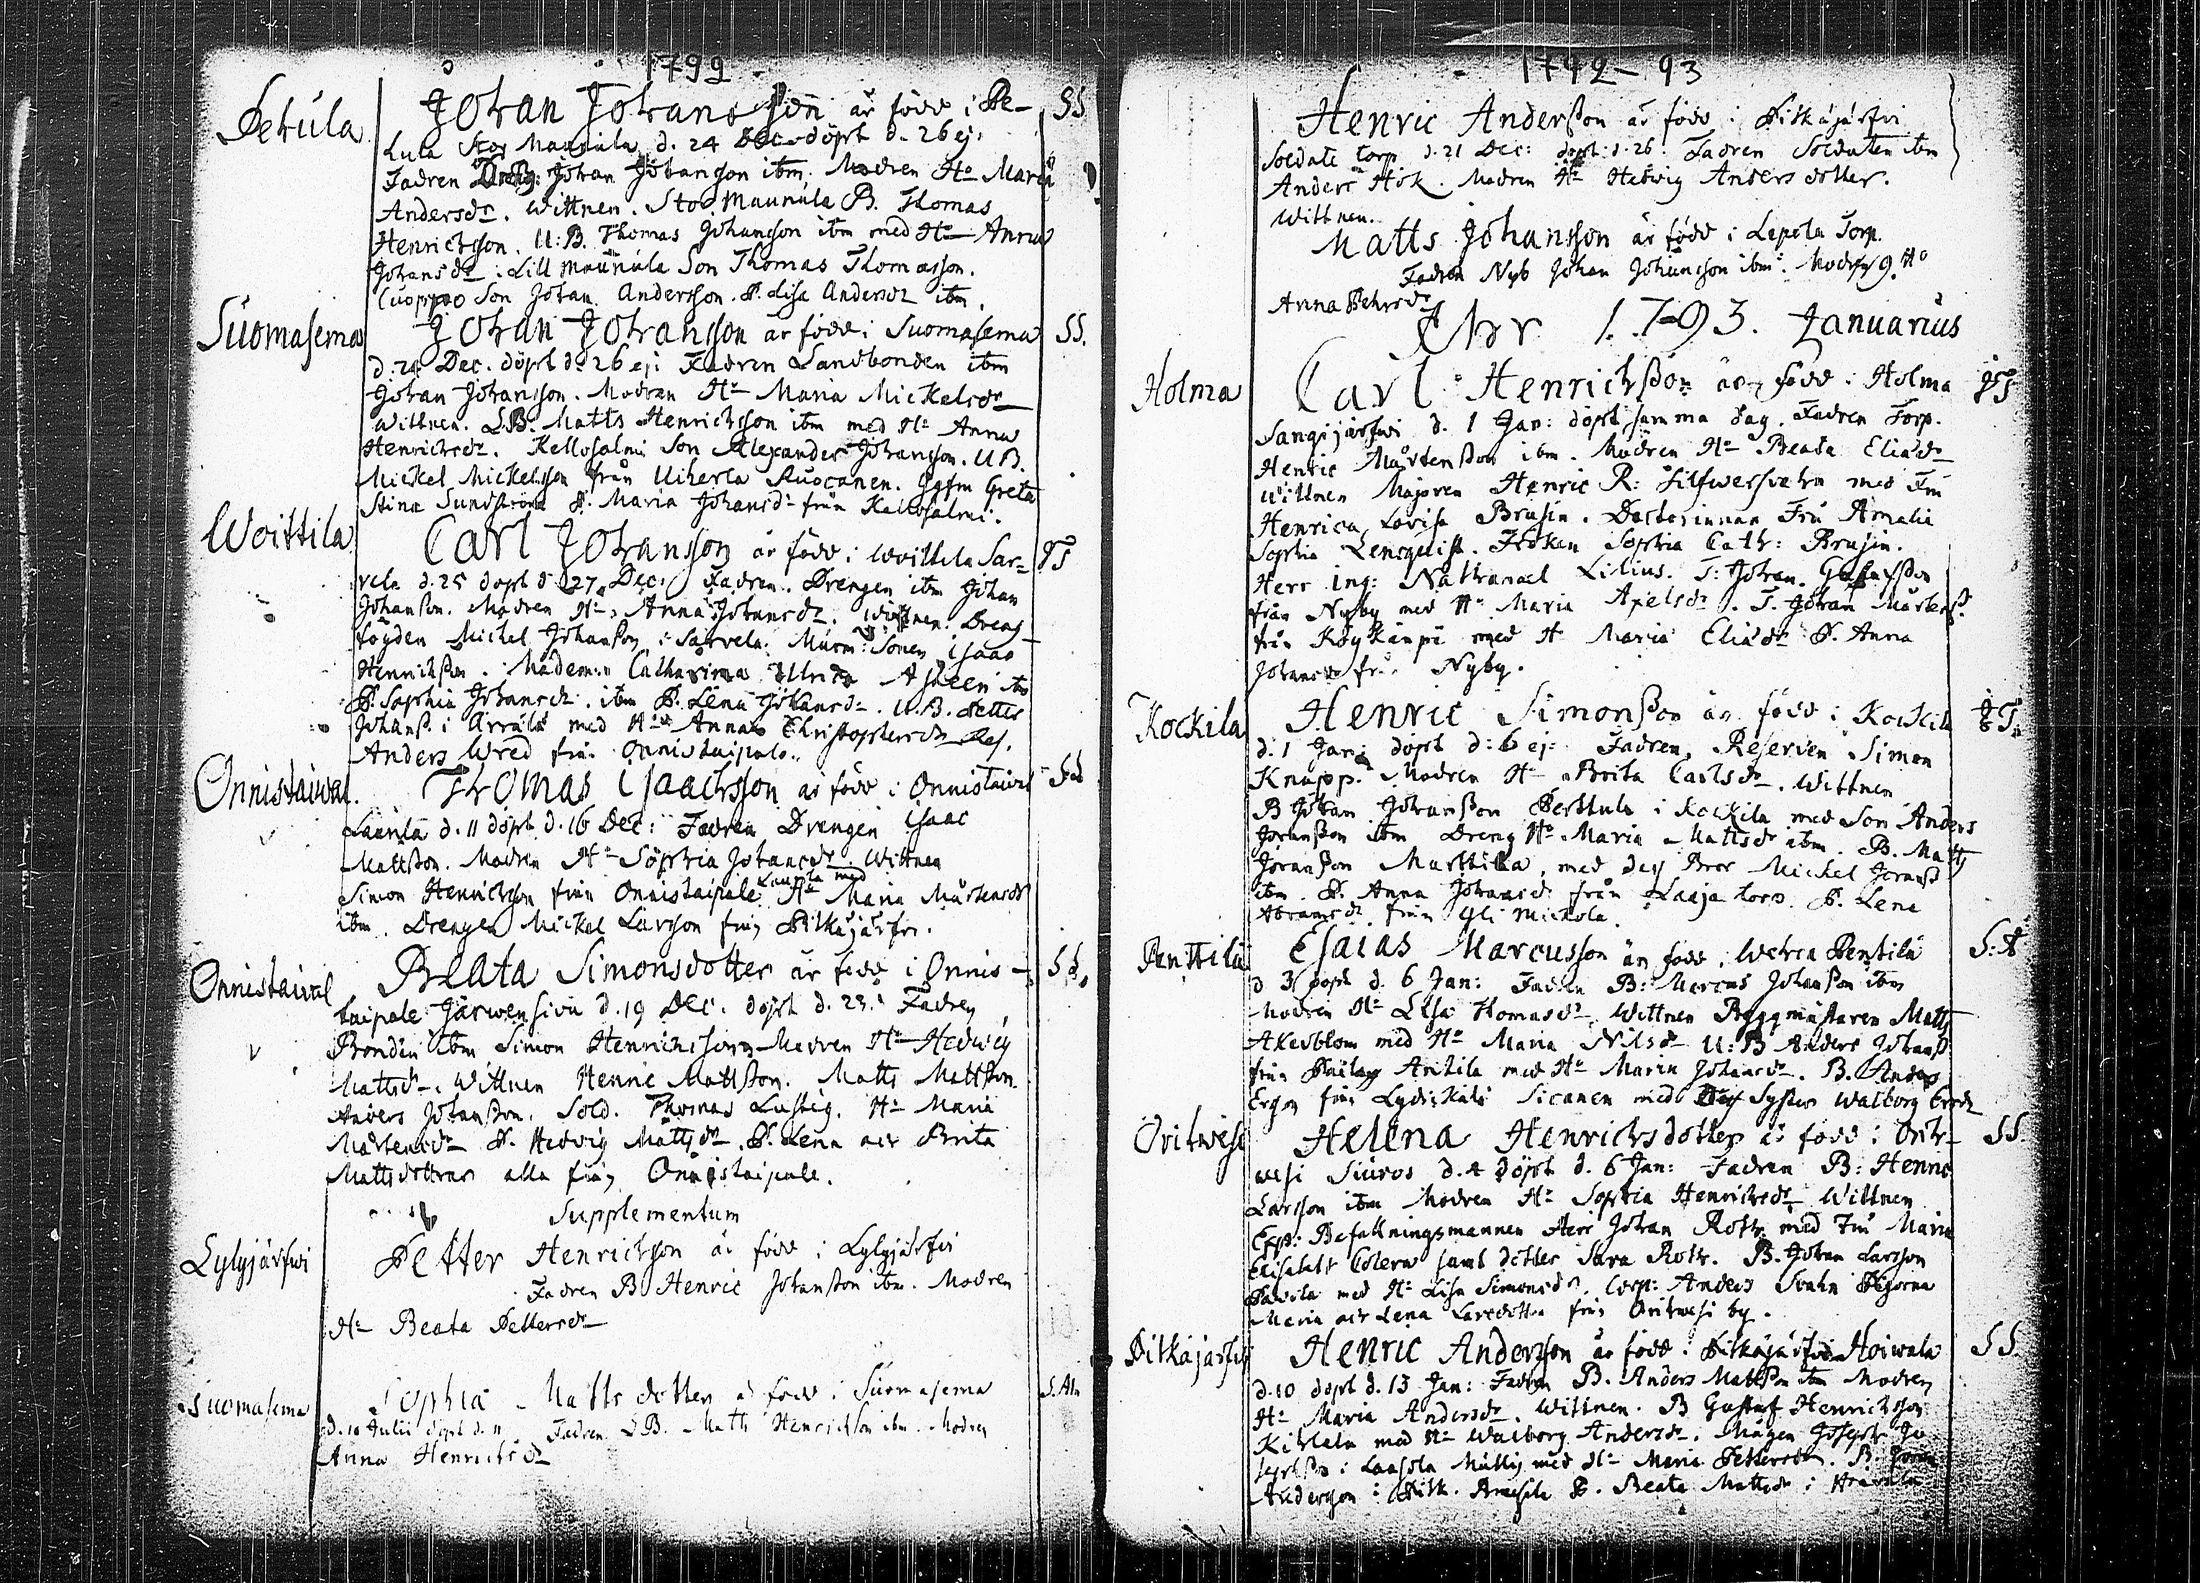 1792
Petula
Johan Johansson är född i Pe- SS
tula Stor Maunula d. 24 Dec. döpt d. 26 ej:
Fadren Dreng: Johan Johansson ibm. Modren Ho Maria
Andersdr. Wittnen. Stor Maunula B. Thomas
Henricsson. U:B. Thomas Johansson ibm med Ho Anna
Johansdr: Lill Maunula Son Thomas Thomasson.
Cuoppo Son Johan Andersson. P. Lisa Andersdr ibm.
Suomasema
Johan Johansson är född i Suomasema SS.
d. 24 Dec. döpt d. 26 ej: Fadren Landbonden ibm
Johan Johansson. Modren Ho Maria Mickelsdr
Wittnen. L.B. Matts Henrichsson ibm med Ho Anna
Henrichsdr. Kellosalmi Son Alexander Johansson. U B.
Mickel Mickelsson från Uiherla Ruocanen. Jgfrn Greta
Stina Sundström P. Maria Johansdr från Kellosalmi.
Woittila
Carl Johansson är född i Woittila Sar=
vela d. 25 döpt d 27 Dec: Fadren. Drengen ibm Johan
Johansson. Modren Ho Anna Johansdr. Wittnen. Dreng-
fogden Mickel Johansson i Sarvela. Murm: Sonen Isaac
Henrichsson. Madem:n Catharina Ulrica
P. Sophia Johansdr. ibm P. Lena Johansdr. U.B. Petter
Johanss. i Arrälä med Ho Anna Christophersdr
Anders Wred från Onnistaipale.
Onnistaival.
Thomas Isaachsson är född i Onnistaival
Laurila d. 11 döpt d. 16 Dec: Fadren Drengen Isaac
Mattsson. Modren Ho Sophia Johansdr. Wittnen
Simon Henrichsson från Onnistaipale Laurila med Ho Maria Mårtensdr
ibm. Drengen Mickel Larsson från Pitkäjärfvi.
Onnistaival
Beata Simonsdotter är född i Onnis-
taipale Järwensivu d. 19 Dec. döpt d. 23. Fadren
Bonden ibm Simon Henrichsson Modren Ho Hedwig
Mattsdr. Wittnen Henric Mattsson. Matts Mattsson
Anders Johansson. Sold. Thomas Lustig. Ho Maria
Mårtensdr P. Hedvig Mattsdr. P. Lena och Brita
Mattsdöttrar alla från Onnistaipale.
Supplementum
Lylyjärfwi
Petter Henrichsson är född i Lylyjärfvi
Fadren B Henric Johansson ibm. Modren
Ho Beata Pettersdr
Suomasema
Sophia Mattsdotter är född i Suomasema
d. 10 Julii döpt d. 11 Fadren L.B. Matts Henrichsson ibm. Modren
Anna Henrichsdr
1792-93
Henric Andersson är född i Pitkäjärfvi
Soldate torp d. 21 Dec: döpt d. 26. Fadren Soldaten ibm
Anders Hök. Modren Ho Hedwig Andersdotter.
Wittnen.
Matts Johansson är född i Lepola Torp.
Fadren Nyb Johan Johansson ibm: Modren Ho
Anna Pehrsdr
Åhr 1793. Januarius
Holma
Carl Henrichsson är född i Holma
Sangijärfwi d. 1 Jan: döpt samma dag. Fadren Torp.
Henric Mårtensson ibm. Modren Ho Beata Eliædr
Wittnen Majoren Henric R: Silfwersvahn med Fru
Henrica Lovisa Brusin. Doctorinnan Fru Amalie
Sophia Lencquist. Fröken Sophia Cath: Brusin.
Herr Ing: Nathanael Lilius. T: Johan Gustafsson
från Nyby med Ho Maria Axelsdr. T. Johan Mårtenss.
från Köykänpä med H Maria Eliædr P. Anna
Johansdr från Nyby.
Kockila
Henric Simonsson är född i Kockila
d. 1 Jan: döpt d: 6 ej: Fadren, Reserven Simon
Knapp. Modren Ho Brita Carlsdr. Wittnen
B Johan Johansson Perttula i Kockila med Son Anders
Johansson ibm Dreng Ho Maria Mattsdr ibm. B. Matts
Göransson Marttila, med dess Bror Mickel Göranss
ibm. P. Anna Johansdr från Laaja torp. P. Lena
Abramsdr från Yli Mickola.
Penttilä
Esaias Marcusson är född i Wehca Pentilä S.A
d 3 döpt d. 6 Jan: Fadren B: Marcus Johansson ibm
Modren Ho Lisa Thomasdr. Wittnen Byggmästaren Matts
Akerblom med Ho Maria Nilsdr U:B Anders Johanss
från Anttila med Ho Maria Johansdr. B. Anders
från Sicanen med Dess Syster Walborg
Oritwesi
Helena Henrichsdotter är född i Orit- SS.
wesi Siuros d. 4 döpt d. 6 Jan: Fadren B: Henric
Larsson ibm Modren Ho Sophia Henrichsdr Wittnen
Exp: Befallningsmannen Herr Johan Roth med Fru Maria
Elisabeth samt dotter Sara Roth. B. Johan Larsson
Pavila med Ho Lisa Simonsdr. Corp: Anders Svahn Pigorna
Maria och Lena Larsdöttrar från Oritwesi by.
Pitkäjärfvi
Henric Andersson är född i Pitkäjärfvi Hoiwala SS.
d. 10 döpt d. 13 Jan: Fadren B. Anders Mattsson ibm Modren
Ho Maria Andersdr. Wittnen. B Gustaf Henrichsson
Kihlala med Ho Walborg Andersdr. Mågen Joseph Jo-
sephsson i Laasola med Ho Maria Pettersdr. B. Johan
Andersson i P. Beata Mattsdr i